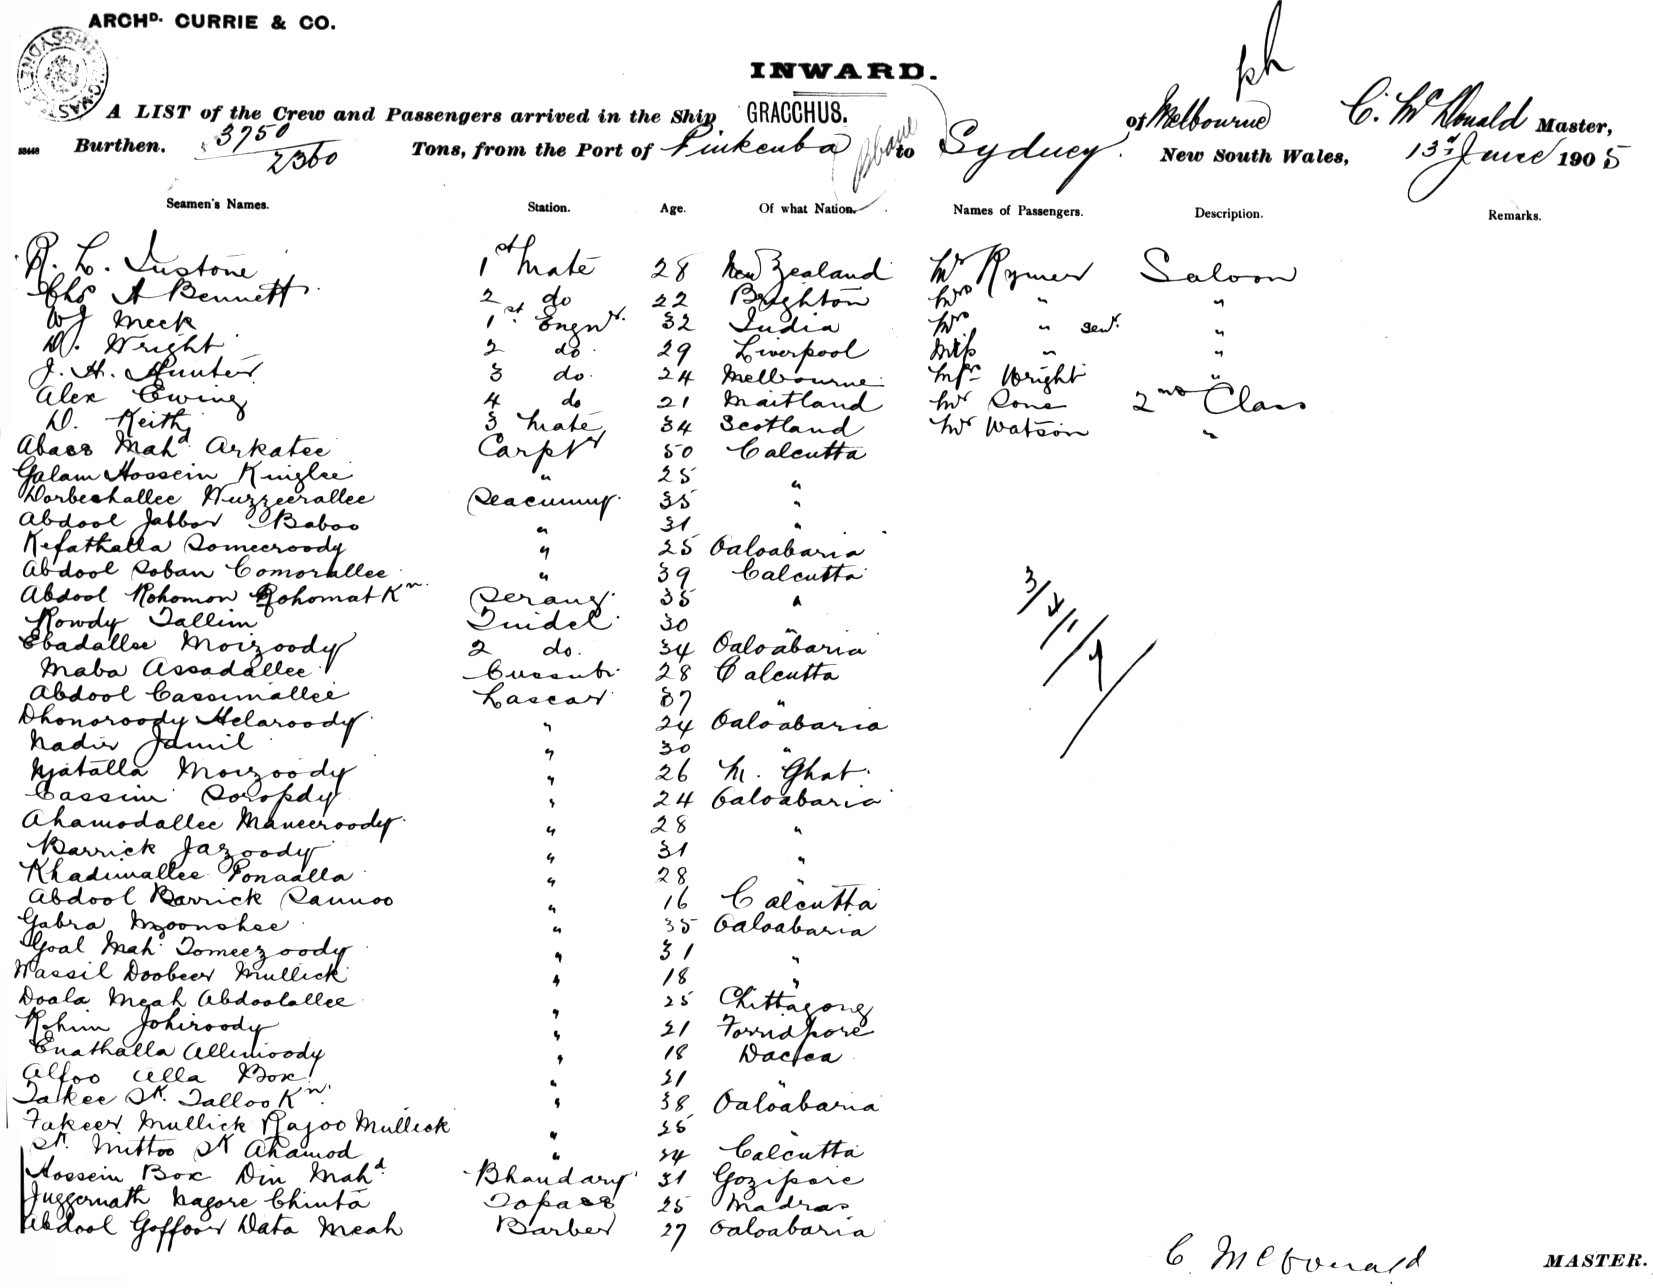 ARCHD. CURRIE & CO.
INWARD.
A LIST of the Crew and Passengers arrived in the Ship GRACCHUS. of Melbourne C. McDonald Master,
Burthen. 3750/2360 Tons, from the Port of Pinkenba to Sydney. New South Wales, 13th June 1905
Seamen's Names. Station. Age. Of what Nation. Names of Passengers. Description. Remarks.
R. L. Instone 1st Mate 28 New Zealand Mr Rymer Saloon
Chs A Bennett 2 do 22 Brighton Mrs " "
WJ Meek 1st. Engnr. 32 India Mrs " senr. "
D. Wright 2 do. 29 Liverpool Miss " "
J. H. Hunter 3 do. 24 Melbourne Mrs Wright "
Alex Ewing 4 do 21 Maitland Mr 2nd Class
D. Keith 3 Mate 34 Scotland Mr Watson "
Abass Mahd Arkatee Carptr 50 Calcutta
Golam Hossein Kinglee " 25 "
Dorbeshallee Wuzzeerallee Seacunny 35 "
Abdool Jabbor Baboo " 31 "
Kefathalla Someeroody " 25 Oaloabaria
Abdool Soban Comorallee " 39 Calcutta
Abdool Rohomon Rohomat Kn. Serang 35 "
Rowdy Tallim Tindel 30 "
Ebadallee Moizoody 2 do. 34 Oaloabaria
Maba Assadallee Cussub 28 Calcutta
Abdool Cassimallee Lascar 37 "
Dhonoroody Helaroody " 24 Oaloabaria
Nadir Jamil " 30 "
Njatalla Moizoody " 26 M. Ghat.
Cassim Soropdy " 24 Oaloabaria
Ahamodallee Maneeroody " 28 "
Barrick Jazoody " 31 "
Khadimallee Ponaalla " 28 "
Abdool Barrick Sannoo " 16 Calcutta
Gabra Moonshee " 35 Oaloabaria
Goal Mah Tomeezoody " 31 "
Wassil Doobeer Mullick " 18 "
Doala Meah Abdoolallee " 25 Chittagong
Rohim Johiroody " 21 Forridpore
Enathalla Allimoody " 18 Dacca
Alfoo Alla Box " 21 "
Fakee Sk. Talloo Kn. " 38 Oaloabaria
Fakeer Mullick Rajoo Mullick " 25 "
Sk. Mittoo Sk Ahamod " 24 Calcutta
Hossein Box Din Mahd Bhandary 31 Gozipore
Juggernath Nagore Chinta Topass 25 Madras
Abdool Goffoor Data Meah Barber 27 Oaloabaria
C McDonald MASTER.